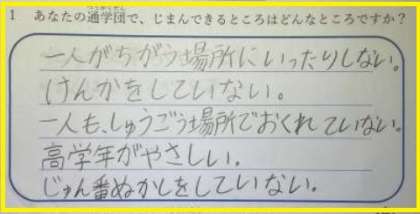 1 あなたの通学団で、じまんできるところはどんなところですか?
一人がちがう場所にいったりしない。
けんかをしていない。
一人も、しゅうごう場所でおくれていない。
高学年がやさしい。
じゅん番ぬかしをしていない。